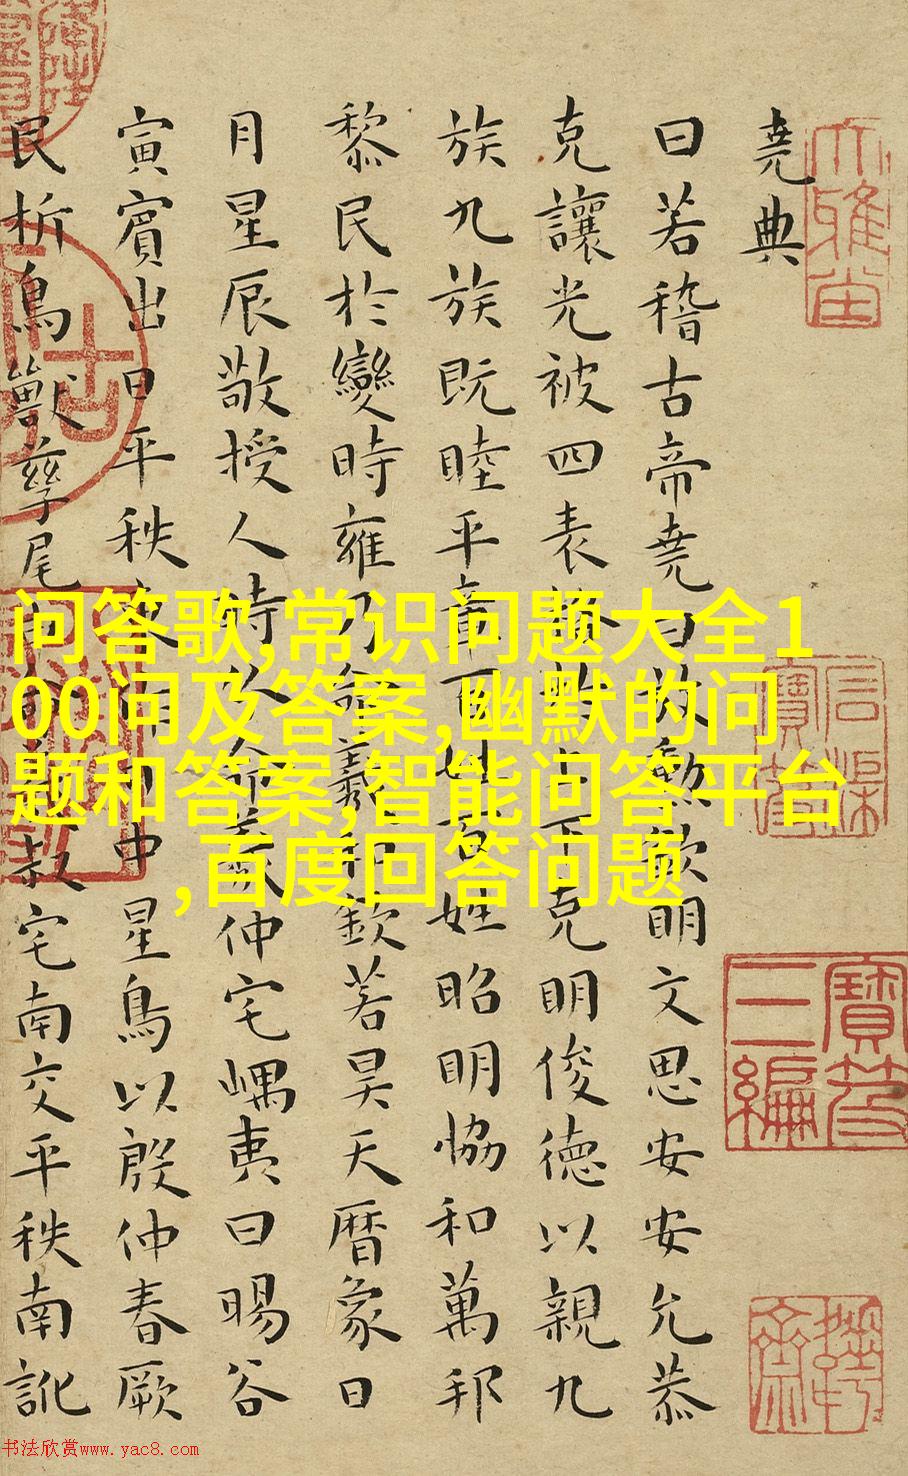 堯典
曰若稽古帝堯曰放勲欽明文思安安允恭
克讓光被四表格于上下克明俊德以親九
族九族既睦平章百姓百姓昭明恊和萬邦
黎民於變時雍乃命羲和欽若昊天曆象日
月星辰敬授人時分命羲仲宅嵎夷曰暘谷
寅賓出日平秩東作日中星鳥以殷仲春厥
民析鳥獸孳尾申命羲叔宅南交平秩南訛
问答歌,常识问题大全1
00问及答案,幽默的问
题和答案,智能问答平台
,百度回答问题
寶笈
三編
书法欣赏www.yac8.com